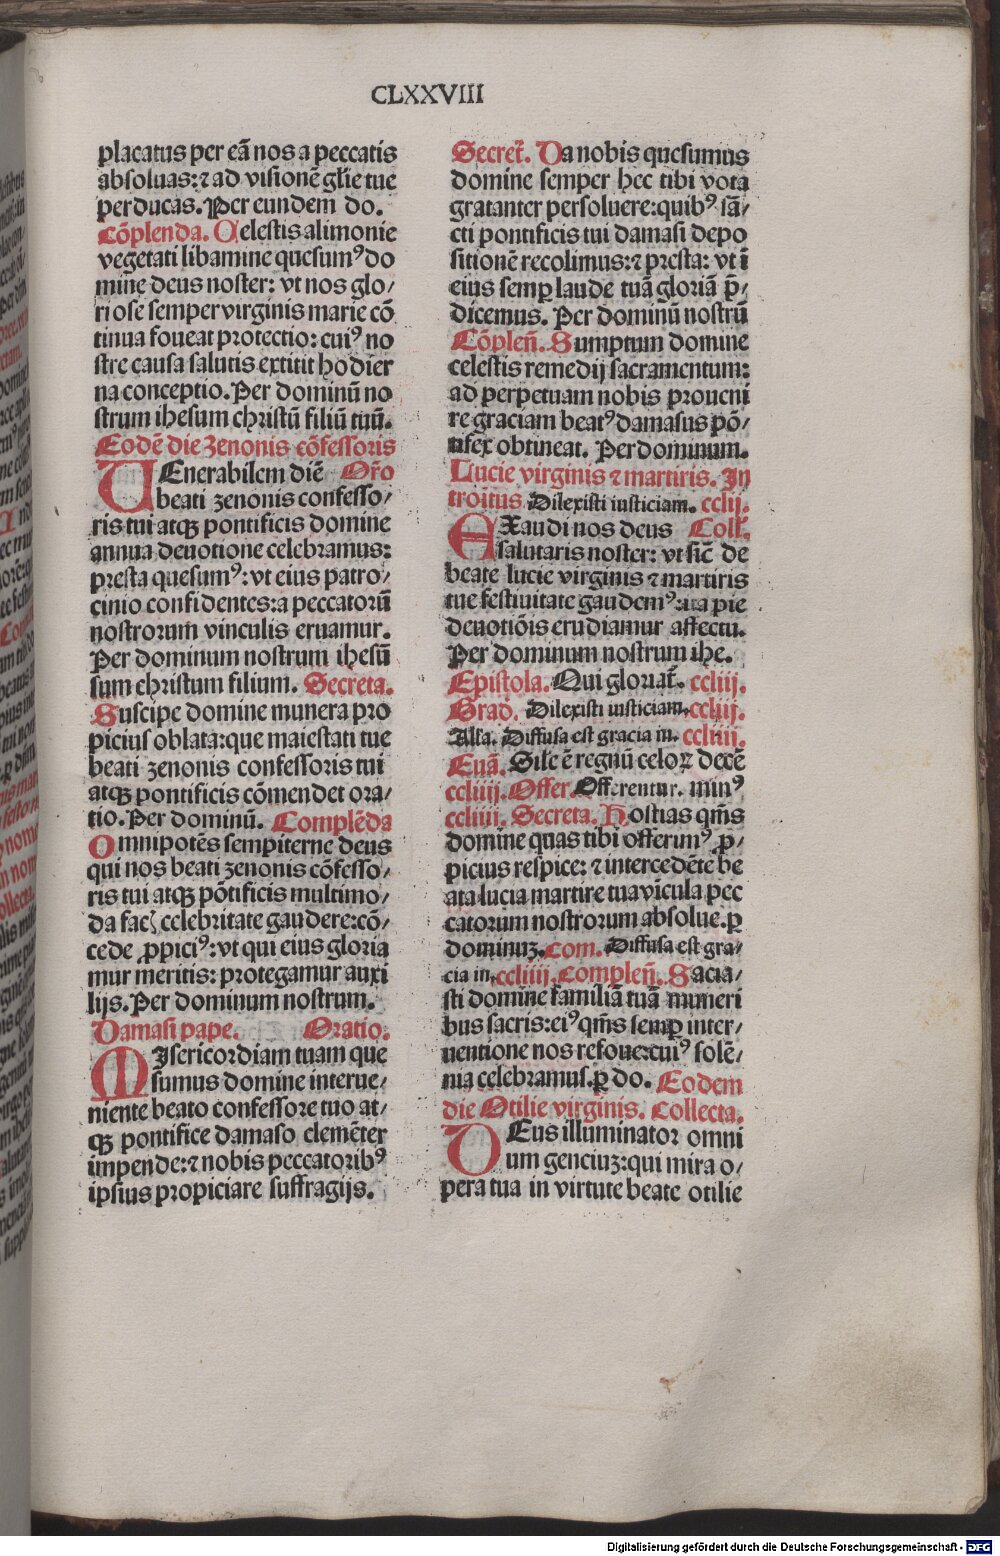 CLXXVIII
placatus per eā nos a peccatis
absoluas: ⁊ ad visionē glīe tue
perducas. Per eundem do.
Cōplenda. Celestis alimonie
vegetati libamine quesumꝰ do
mine deus noster: vt nos glo/
riose semper virginis marie cō
tinua foueat protectio: cuiꝰ no
stre causa salutis extitit hodier
na conceptio. Per dominū no
strum ihesum christū filiū tuū.
Eodē die zenonis cōfessoris
VEnerabilem diē Oro
beati zenonis confesso/
ris tui atqꝫ pontificis domine
annua deuotione celebramus:
presta quesumꝰ: vt eius patro/
cinio confidentes: a peccatorū
nostrorum vinculis eruamur.
Per dominum nostrum ihesū
sum christum filium. Secreta.
Suscipe domine munera pro
picius oblata: que maiestati tue
beati zenonis confessoris tui
atqꝫ pontificis cōmendet ora/
tio. Per dominū. Complēda
Omnipotēs sempiterne deus
qui nos beati zenonis cōfesso/
ris tui atqꝫ pōtificis multimo/
da facꝭ celebritate gaudere: cō/
cede ꝓpiciꝰ: vt qui eius gloria
mur meritis: protegamur auxi
lijs. Per dominum nostrum.
Damasi pape. Oratio.
MIsericordiam tuam que
sumus domine interue/
niente beato confessore tuo at/
qꝫ pontifice damaso clemēter
impende: ⁊ nobis peccatoribꝰ
ipsius propiciare suffragijs.
Secret̄. Da nobis quesumus
domine semper hec tibi vota
gratanter persoluere: quibꝰ sā/
cti pontificis tui damasi depo
sitionē recolimus: ⁊ presta: vt ī
eius semꝑ laude tuā gloriā p̄/
dicemus. Per dominū nostrū
Cōplen̄. Sumptum domine
celestis remedij sacramentum:
ad perpetuam nobis proueni
re graciam beatꝰ damasus pō/
tifex obtineat. Per dominum.
Lucie virginis ⁊ martiris. In
troitus Dilexisti iusticiam. cclij.
EXaudi nos deus Coll̄.
salutaris noster: vt sic̄ de
beate lucie virginis ⁊ martiris
tue festiuitate gaudemꝰ: ita pie
deuotiōis erudiamur affectu.
Per dominum nostrum ihe.
Epistola. Qui gloriat̄. ccliij.
Grad. Dilexisti iusticiam. ccliij.
Alla. Diffusa est gracia in. ccliiij.
Euā. Sile ē regnū celoꝝ decē
ccliiij. Offer. Offerentur. minꝰ
ccliiij. Secreta. Hostias qm̄s
domine quas tibi offerimꝰ ꝓ/
picius respice: ⁊ intercedēte be
ata lucia martire tua vīcula pec
catorum nostrorum absolue. ꝑ
dominuꝫ. Com. Diffusa est gra/
cia in. ccliiij. Complen̄. Sacia/
sti domine familiā tuā muneri
bus sacris: eiꝰ qm̄s semꝑ inter/
uentione nos refoue: cuiꝰ solē/
nia celebramus. ꝑ do. Eodem
die Otilie virginis. Collecta.
DEus illuminator omni
um genciuꝫ: qui mira o/
pera tua in virtute beate otilie
Digitalisierung gefördert durch die Deutsche Forschungsgemeinschaft - DFG